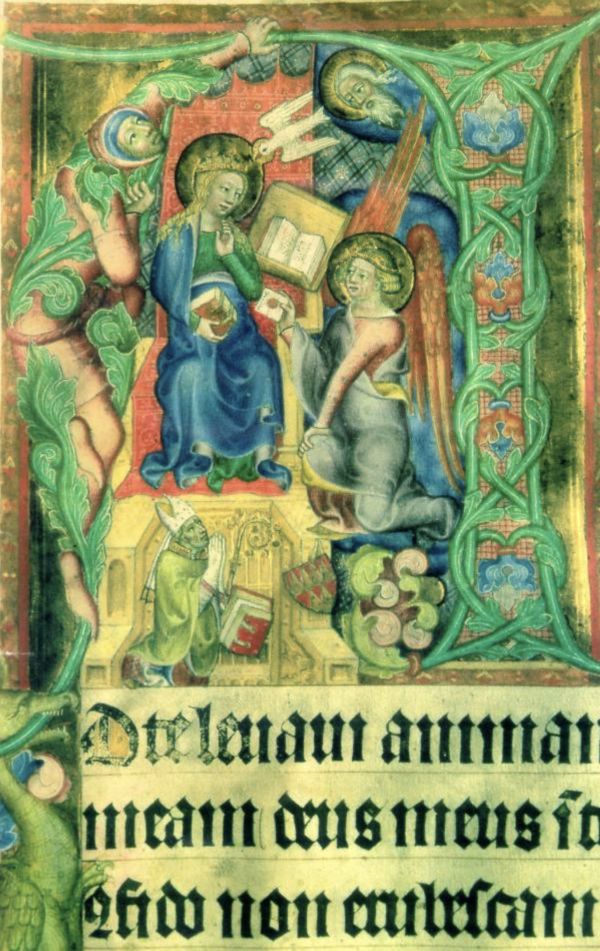 Dte leuaui animam
meam deus meus ī te
ꝯfido non erubescam